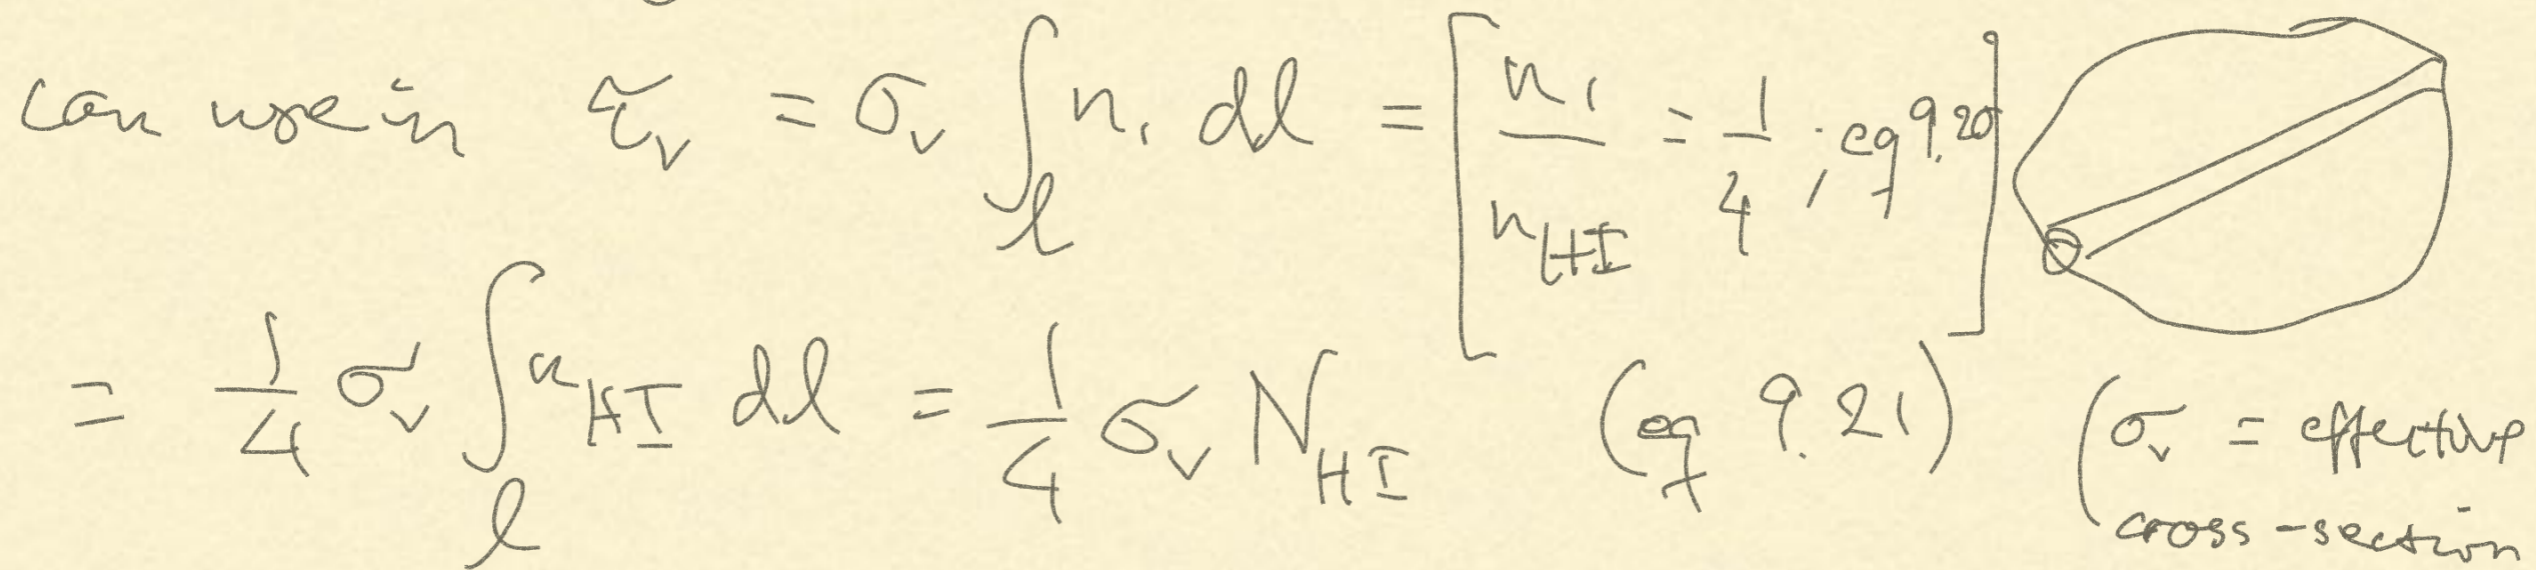 can use in τ_ν = σ_ν ∫_l n_1 dl = [n_1 / n_HI = 1/4 ; eq 9.20]
= 1/4 σ_ν ∫_l n_HI dl = 1/4 σ_ν N_HI (eq 9.21) (σ_ν = effective
cross-section